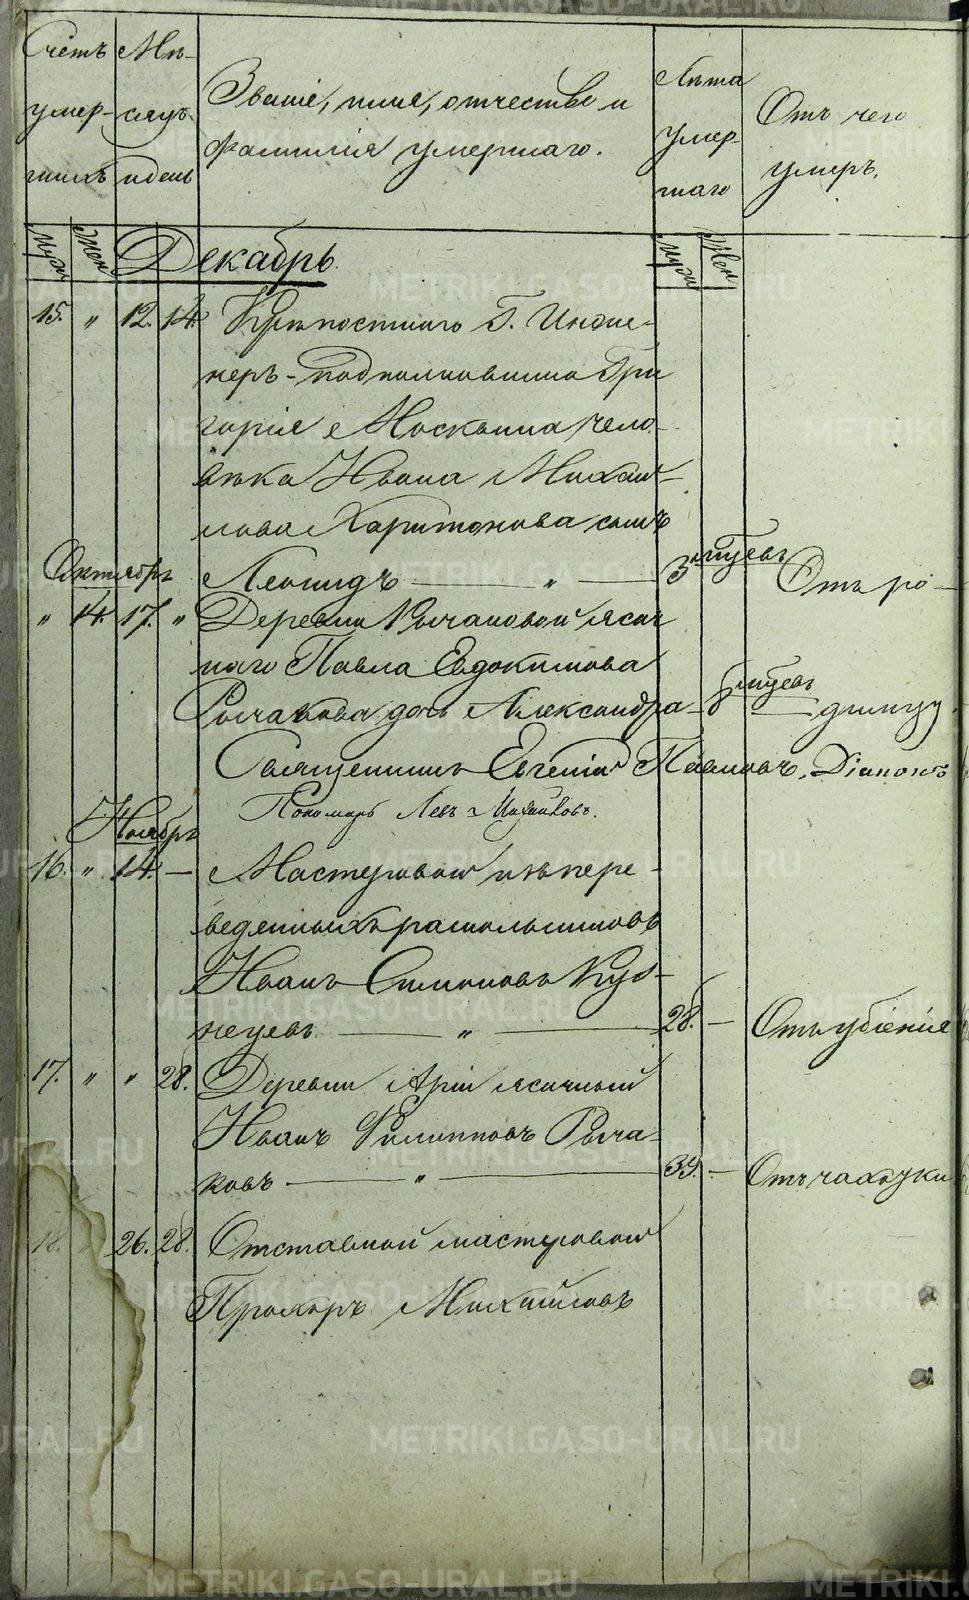 Счетъ умер- шихъ
Мѣ- сяцъ и день
Званіе, имя, отчество и
фамилія умершаго.
Лѣта умер- шаго
Отъ чего
умеръ.
Муж. Жен. Декабрь. Муж. Жен.
15. " 12. 14. Крѣпостнаго Г. Инже-
неръ-подполковника Гри
горія Москвина чело-
вѣка Ивана Михай-
лова Харитонова сынъ
Октябрь Леонидъ — " — 3 мѣсяцъ Отъ ро-
" 14. 17. " Деревни Рычаковой ясач
наго Павла Евдокимова
Рычакова дочь Александра 8 мѣсяцъ — димцу.
Священникъ Евгеній Павловъ. Діаконъ
Пономарь Левъ Михайловъ.
Ноябрь
16. " 14. — Мастеровой изъ пере-
веденныхъ
Иванъ Симоновъ Куз-
нецевъ. — " — 28. — Отъ убіенія
17. " " 28. Деревни Арій ясачный
Иванъ Филипповъ Рыча-
ковъ — " — 39. — Отъ чахотки
18. " 26. 28. Отставной мастеровой
Прохоръ Михайловъ
METRIKI.GASO-URAL.RU